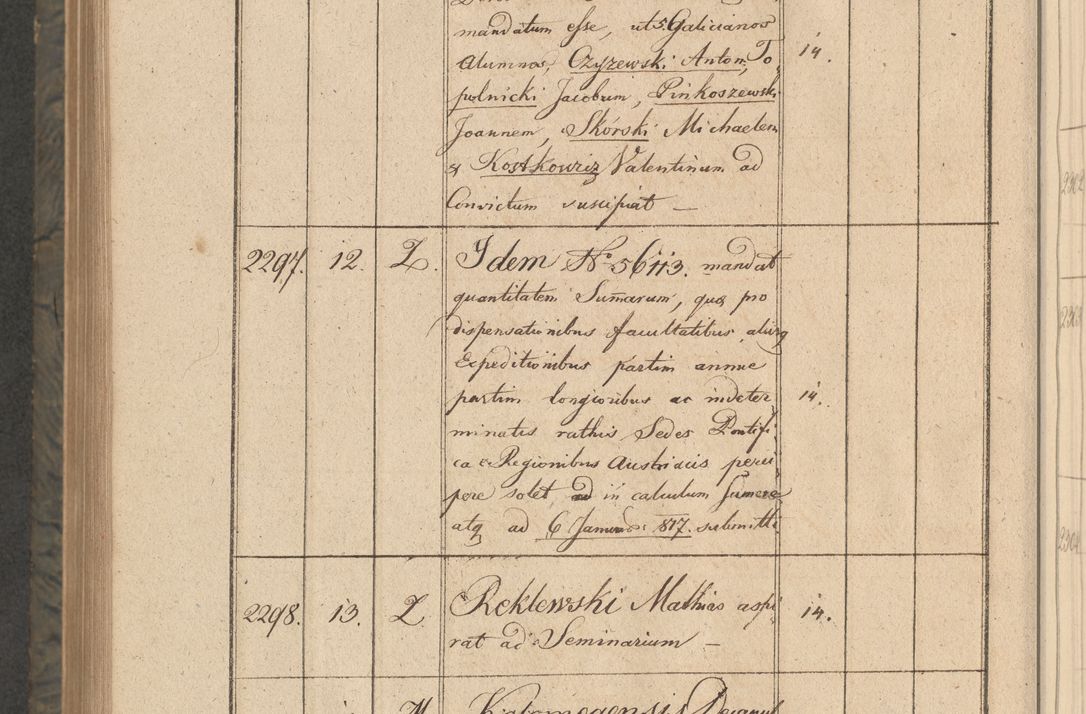 mandatum esse, ut 5. Galicianos
Alumnos, Czyzewski Anton, To 14.
polnicki Jacobum, Pinkoszewski
Joannem, Skórski Michaelem
& Kostkowicz Valentinum ad
Convictum suscipiat —
2297. 12. Z. Idem No 56113. mandat
quantitatem Sum̄arum, quas pro
dispensationibus facultatibus, aliisq
Expeditionibus partim annue
partim longioribus ac indeter 14.
minatis rathis Sedes Pontifi
ca e Regionibus Austriacis perci
pere solet, ad in calculum sumere
atq ad 6 Januar: 817. submitti
2298. 13. Z. Reklewski Mathias aspi 14.
rat ad Seminarium —
Decanul
2302